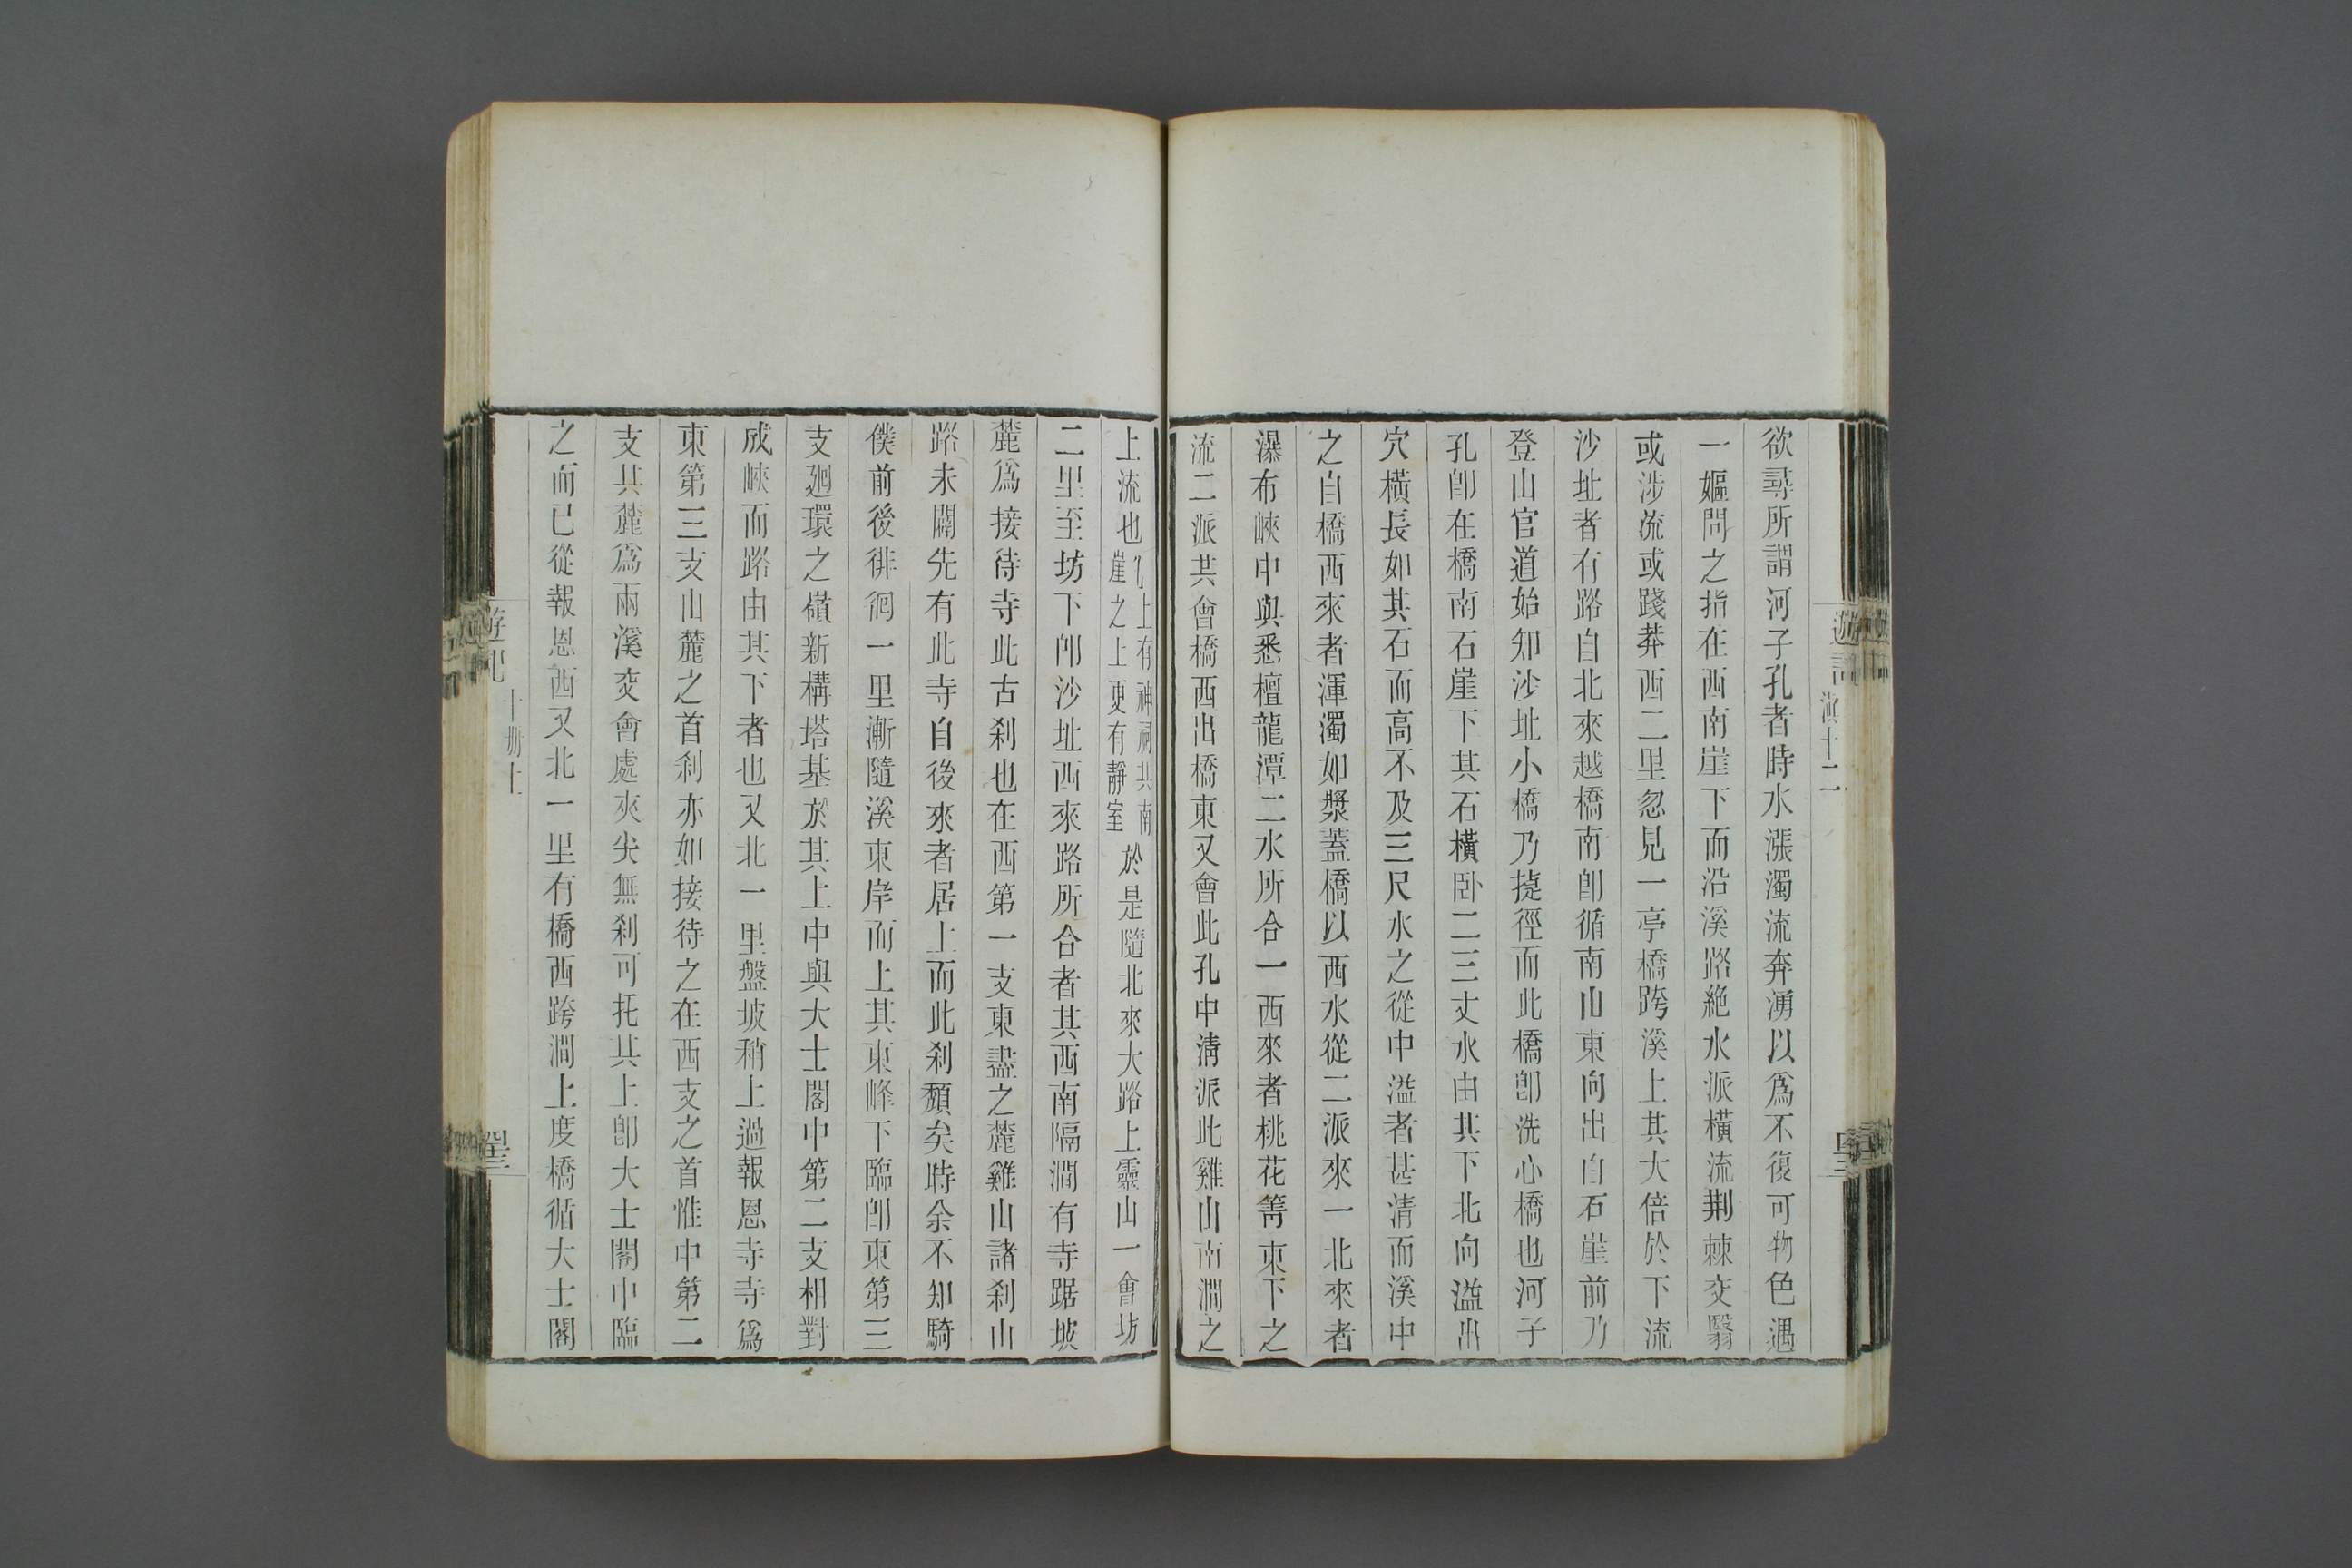 遊記 滇十二
欲尋所謂河子孔者時水漲濁流奔湧以爲不復可物色遇
一嫗問之指在西南崖下而沿溪路絶水派橫流荆棘交翳
或涉流或踐莽西二里忽見一亭橋跨溪上其大倍於下流
沙址者有路自北來越橋南卽循南山東向出白石崖前乃
登山官道始知沙址小橋乃㨗徑而此橋卽洗心橋也河子
孔卽在橋南石崖下其石橫卧二三丈水由其下北向溢出
穴橫長如其石而高不及三尺水之從中溢者甚清而溪中
之自橋西來者渾濁如漿蓋橋以西水從二派來一北來者
瀑布峽中與悉檀龍潭二水所合一西來者桃花箐東下之
流二派共會橋西出橋東又會此孔中清派此雞山南澗之
上流也孔上有神祠其南崖之上更有靜室於是隨北來大路上靈山一會坊
二里至坊下卽沙址西來路所合者其西南隔澗有寺踞坡
麓爲接待寺此古刹也在西第一支東盡之麓雞山諸刹山
路未闢先有此寺自後來者居上而此刹頽矣時余不知騎
僕前後徘徊一里漸隨溪東岸而上其東峰下臨卽東第三
支廻環之嶺新構塔基於其上中與大士閣中第二支相對
成峽而路由其下者也又北一里盤坡稍上過報恩寺寺爲
東第三支山麓之首刹亦如接待之在西支之首惟中第二
支其麓爲兩溪交會處夾尖無刹可托其上卽大士閣中臨
之而已從報恩西又北一里有橋西跨澗上度橋循大士閣
遊記 十册上